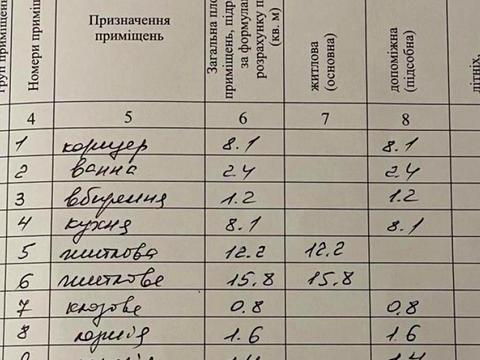 груп приміщень
Номери приміщ
Призначення
приміщень
Загальна пло
приміщень, підр
за формулам
розрахунку п
(кв. м)
житлова
(основна)
допоміжна
(підсобна)
літніх,
4 5 6 7 8
1 коридор 8.1 8.1
2 ванна 2.4 2.4
3 вбиральня 1.2 1.2
4 кухня 8.1 8.1
5 житлова 12.2 12.2
6 житлове 15.8 15.8
7 кладове 0.8 0.8
8 лоджія 1.6 1.6